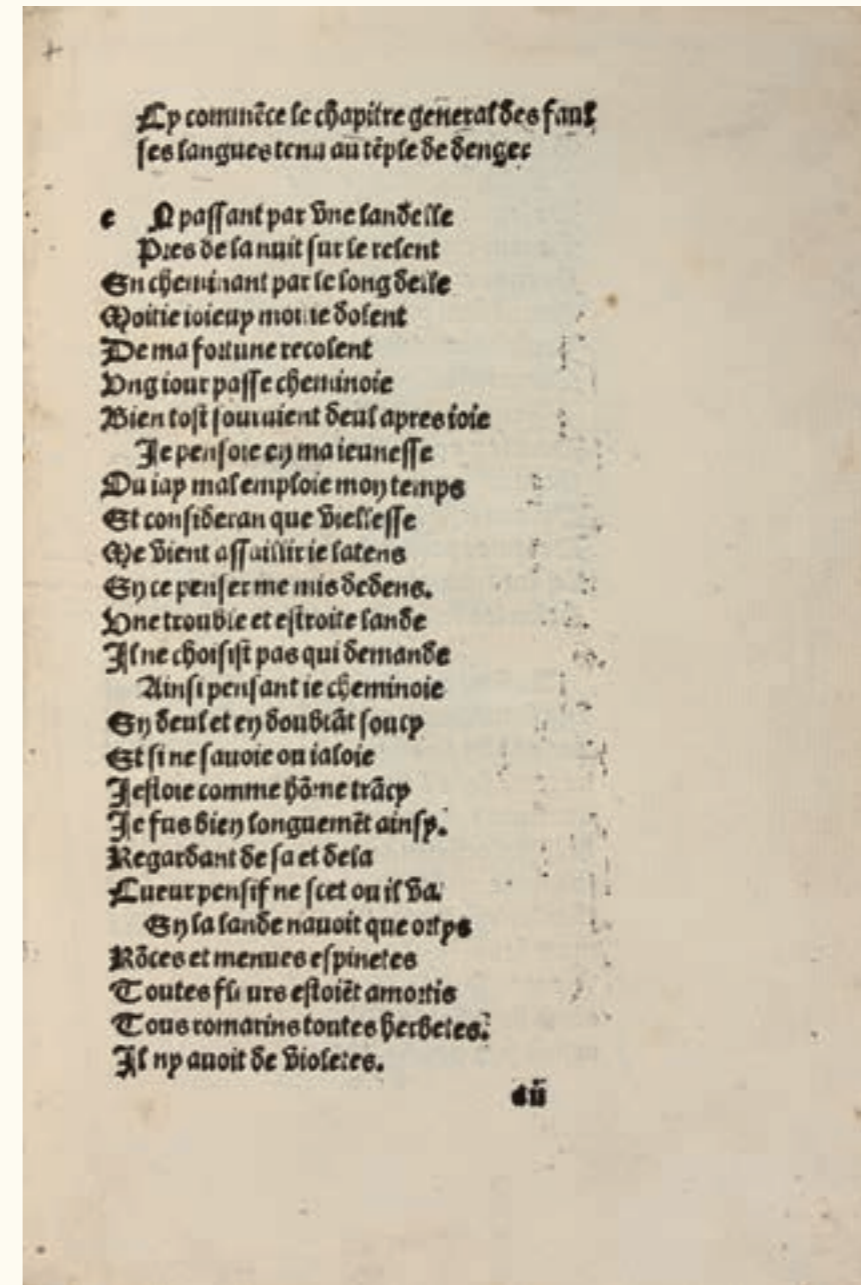 Cy commēce le chapitre general des faul
ses langues tenu au tēple de denger
e N passant par vne landelle
Pres de la nuit sur le relent
En cheminant par le long delle
Moitie ioieux moitie dolent
De ma fortune recolent
Vng iour passe cheminoie
Bien tost souuient deul apres ioie
Je pensoie en ma ieunesse
Ou iay mal emploie mon temps
Et consideran que viellesse
Me vient assaillir ie latens
En ce penser me mis dedens.
Vne trouble et estroite lande
Il ne choisist pas qui demande
Ainsi pensant ie cheminoie
En deul et en doubtāt soucy
Et si ne sauoie ou ialoie
Jestoie comme hōme trācy
Je fus bien longuemēt ainsy.
Regardant de sa et dela
Cueur pensif ne scet ou il va.
En la lande nauoit que ortys
Rōces et menues espinetes
Toutes fleurs estoiēt amortis
Tous romarins toutes herbetes.
Il ny auoit de violetes.